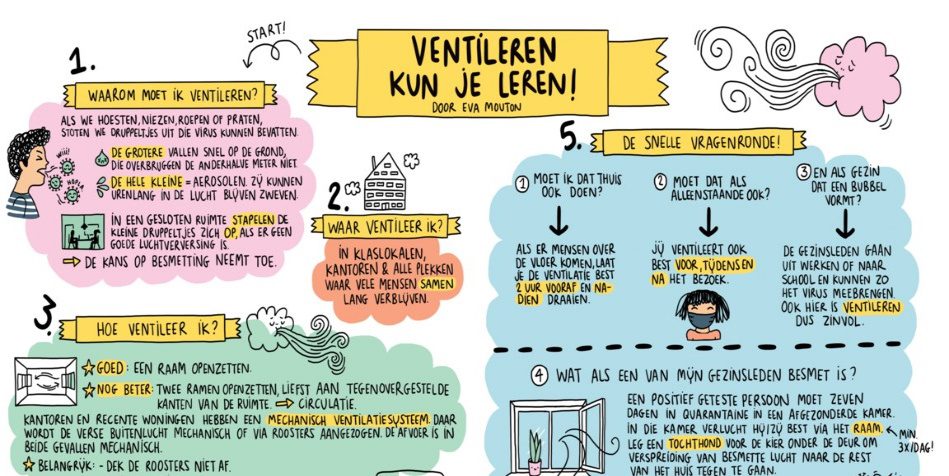 START!
VENTILEREN
KUN JE LEREN!
DOOR EVA MOUTON
1.
WAAROM MOET IK VENTILEREN?
ALS WE HOESTEN, NIEZEN, ROEPEN OF PRATEN,
STOTEN WE DRUPPELTJES UIT DIE VIRUS KUNNEN BEVATTEN.
DE GROTERE VALLEN SNEL OP DE GROND,
DIE OVERBRUGGEN DE ANDERHALVE METER NIET.
DE HELE KLEINE = AEROSOLEN. ZIJ KUNNEN
URENLANG IN DE LUCHT BLIJVEN ZWEVEN.
IN EEN GESLOTEN RUIMTE STAPELEN DE
KLEINE DRUPPELTJES ZICH OP, ALS ER GEEN
GOEDE LUCHTVERVERSING IS.
⇒ DE KANS OP BESMETTING NEEMT TOE.
2.
WAAR VENTILEER IK?
IN KLASLOKALEN,
KANTOREN & ALLE PLEKKEN
WAAR VELE MENSEN SAMEN
LANG VERBLIJVEN.
3.
HOE VENTILEER IK?
GOED: EEN RAAM OPENZETTEN.
NOG BETER: TWEE RAMEN OPENZETTEN, LIEFST AAN TEGENOVERGESTELDE
KANTEN VAN DE RUIMTE ⇒ CIRCULATIE.
KANTOREN EN RECENTE WONINGEN HEBBEN EEN MECHANISCH VENTILATIESYSTEEM. DAAR
WORDT DE VERSE BUITENLUCHT MECHANISCH OF VIA ROOSTERS AANGEZOGEN. DE AFVOER IS IN
BEIDE GEVALLEN MECHANISCH.
BELANGRIJK: - DEK DE ROOSTERS NIET AF.
5.
DE SNELLE VRAGENRONDE!
1 MOET IK DAT THUIS
OOK DOEN?
ALS ER MENSEN OVER
DE VLOER KOMEN, LAAT
JE DE VENTILATIE BEST
2 UUR VOORAF EN NA-
DIEN DRAAIEN.
2 MOET DAT ALS
ALLEENSTAANDE OOK?
JIJ VENTILEERT OOK
BEST VOOR, TIJDENS EN
NA HET BEZOEK.
3 EN ALS GEZIN
DAT EEN BUBBEL
VORMT?
DE GEZINSLEDEN GAAN
UIT WERKEN OF NAAR
SCHOOL EN KUNNEN ZO
HET VIRUS MEEBRENGEN.
OOK HIER IS VENTILEREN
DUS ZINVOL.
4 WAT ALS EEN VAN MIJN GEZINSLEDEN BESMET IS?
EEN POSITIEF GETESTE PERSOON MOET ZEVEN
DAGEN IN QUARANTAINE IN EEN AFGEZONDERDE KAMER.
IN DIE KAMER VERLUCHT HIJ/ZIJ BEST VIA HET RAAM.
MIN.
3X/DAG!
LEG EEN TOCHTHOND VOOR DE KIER ONDER DE DEUR OM
VERSPREIDING VAN BESMETTE LUCHT NAAR DE REST
VAN HET HUIS TEGEN TE GAAN.